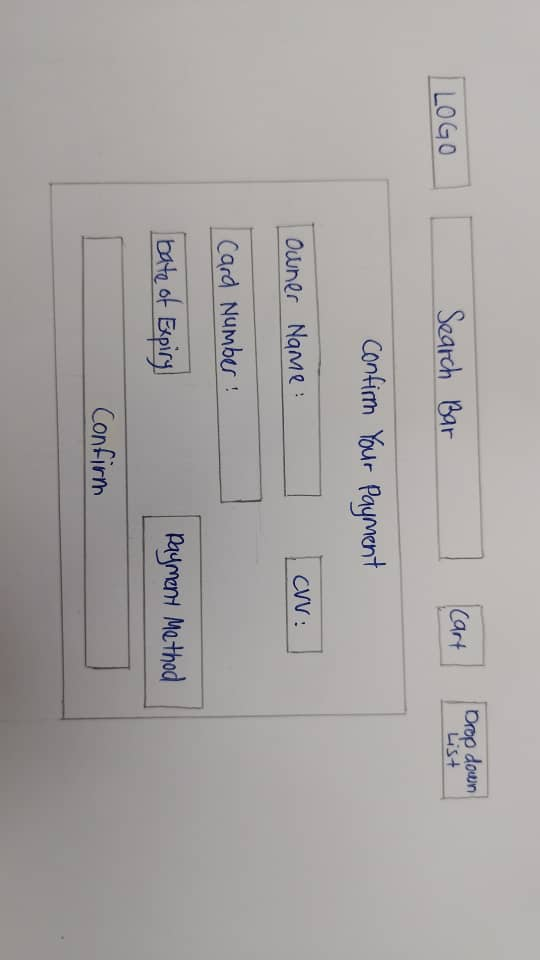 LOGO
Search Bar
Cart
Drop down
List
Confirm Your Payment
Owner Name :
CVV :
Card Number :
Date of Expiry
Payment Method
Confirm